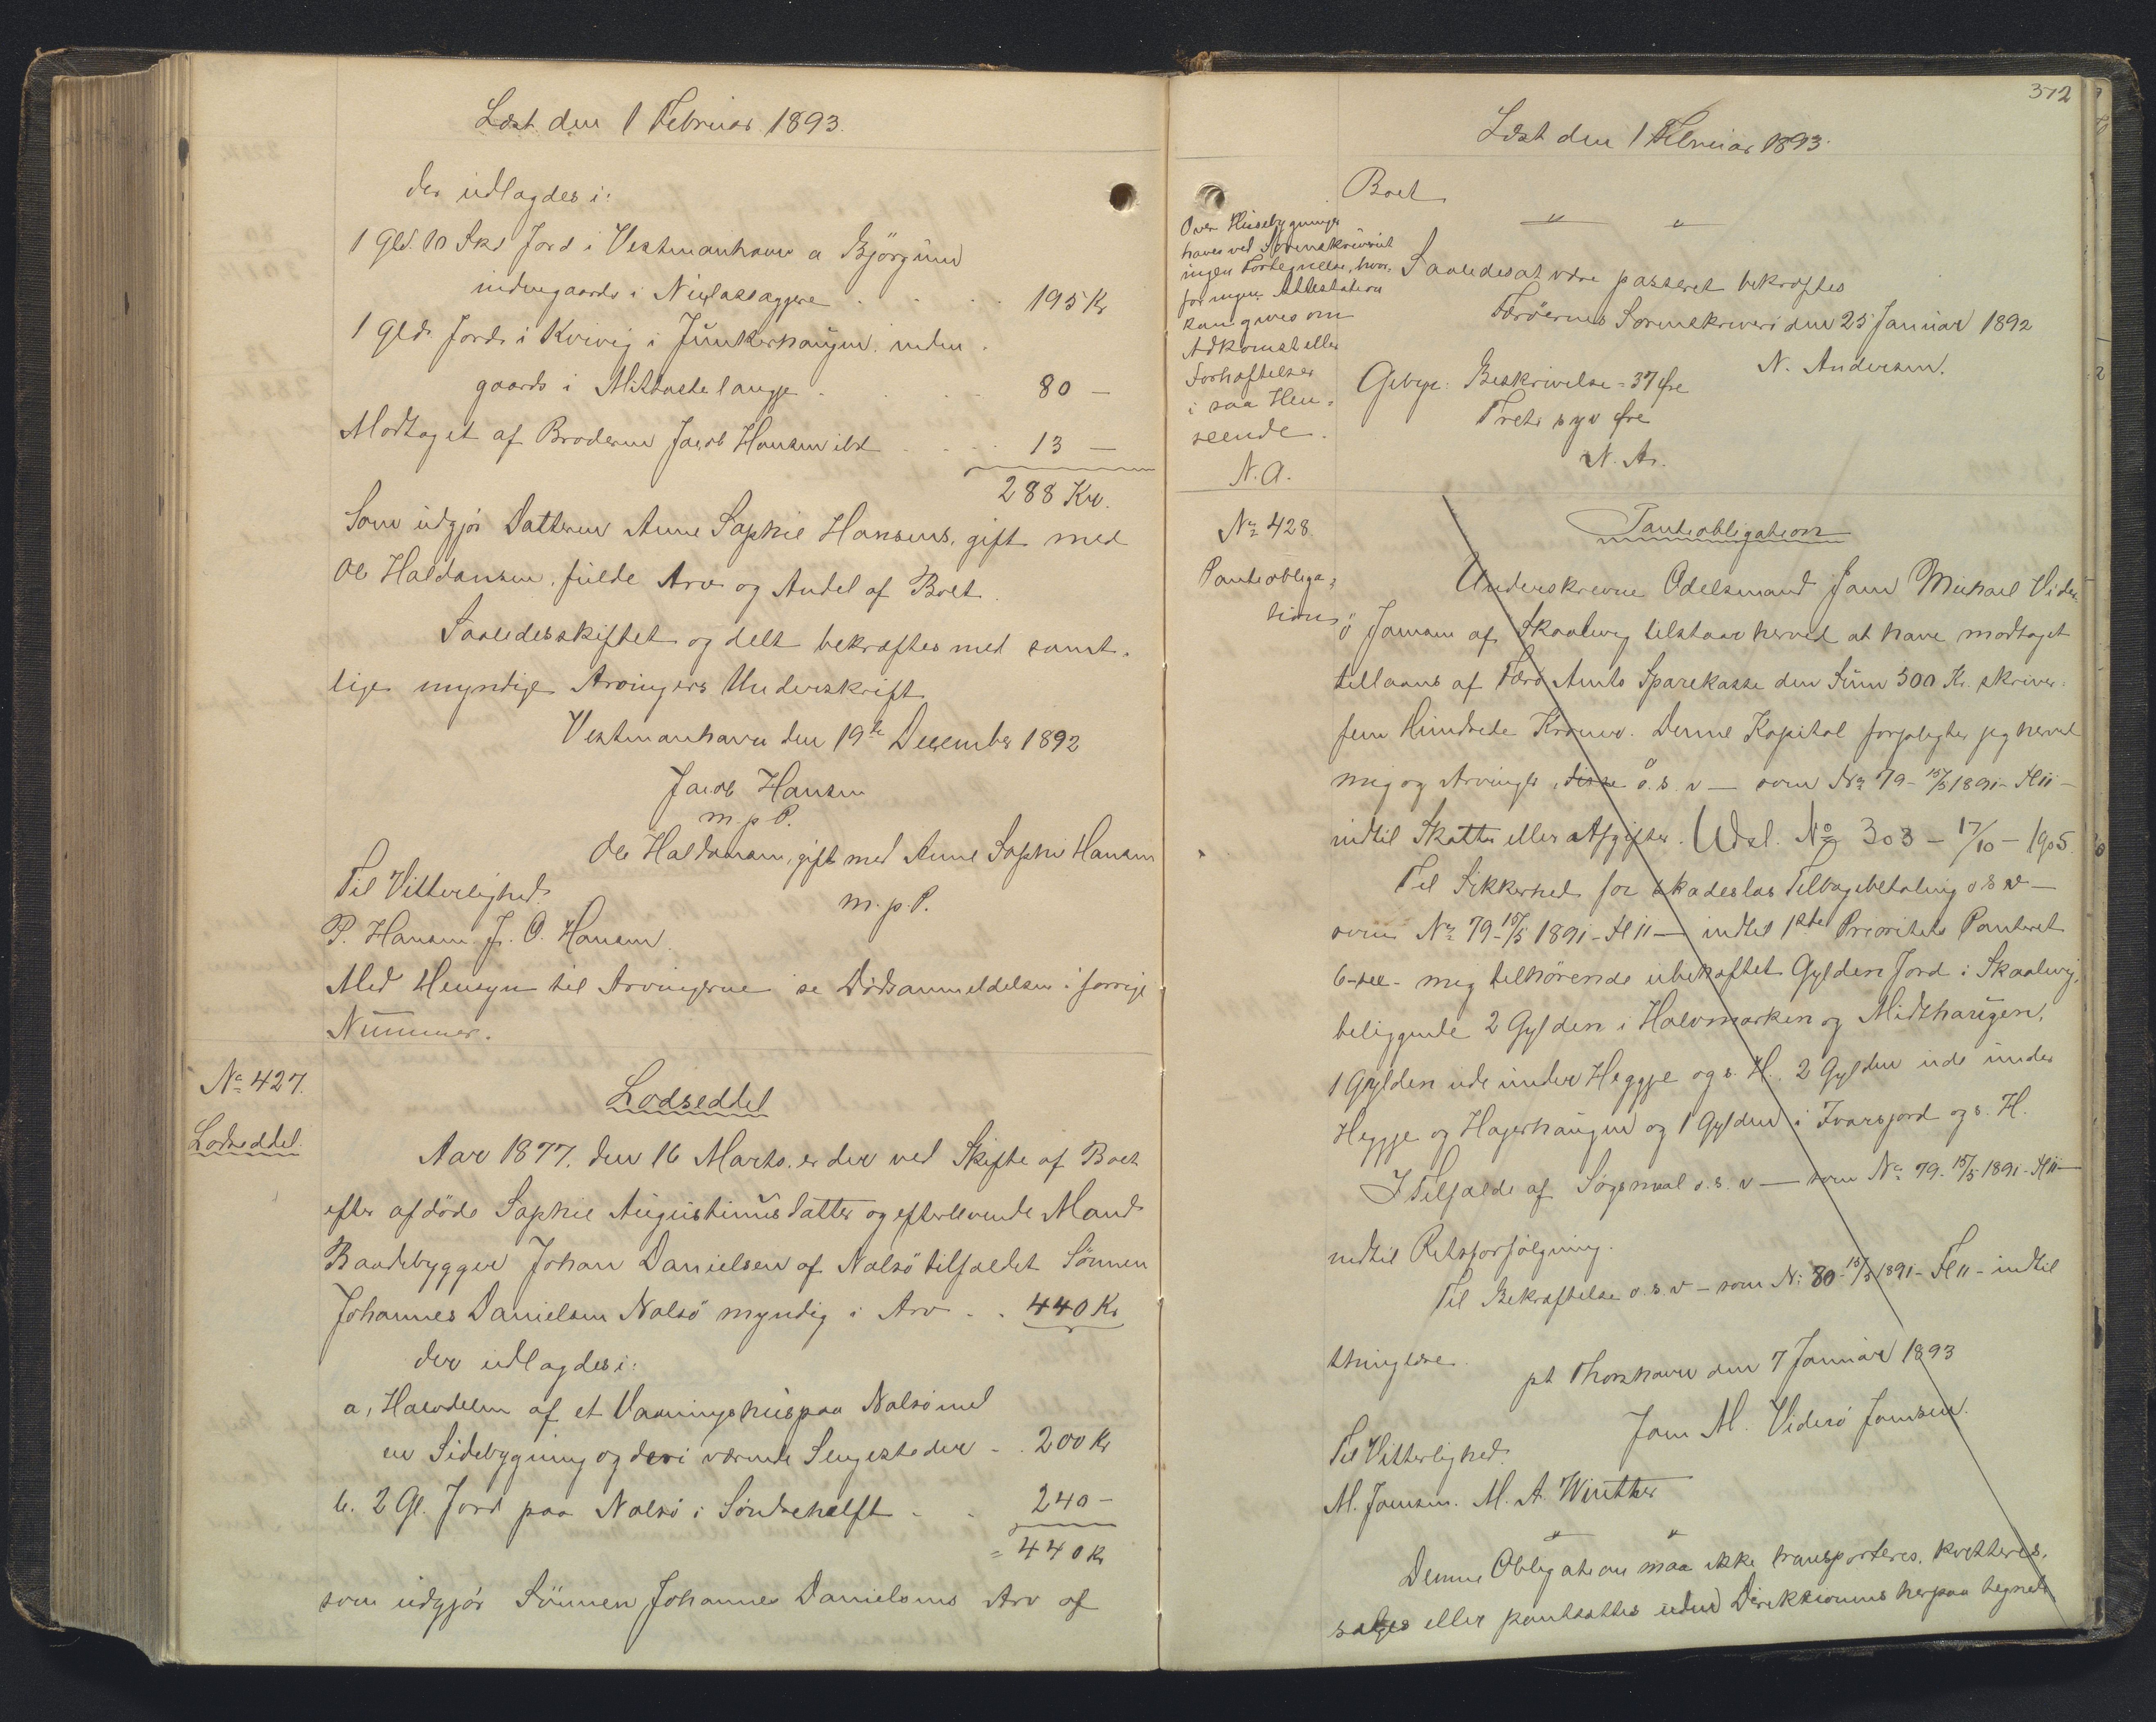 Læst den 1 Februar 1893.
der udlagdes i:
1 Gld. 10 Skd Jord i Vestmanhavn a Bjørgum
indengaards i Niclasaggere . . . 195 Kr
1 Gld. Jord i Kvivig i Junkerhaugen inden
gaards i Midtastelangje . . . 80 —
Modtaget af Broderen Jacob Hansen ibd . . . 13 —
288 Kr.
Som udgjør Datteren Anne Sophie Hansens, gift med
Ole Haldansen, fulde Arv og Andel af Boet.
Saaledes skiftet og delt bekræftes med samt-
lige myndige Arvingers Underskrift
Vestmanhavn den 19de December 1892
Jacob Hansen
m. p. P.
Ole Haldansen, gift med Anne Sophie Hansen
Til Vitterlighed.
m. p. P.
P. Hansen J. O. Hansen.
Med Hensyn til Arvingerne se Dødsanmeldelsen i forrige
Nummer.
No 427.
Lodseddel
Lodseddel.
Aar 1877, den 16 Marts, er der ved Skifte af Boet
efter afdøde Sophie Augustinusdatter og efterlevende Mand
Baadebygger Johan Danielsen af Nolsø tilfaldet Sønnen
Johannes Danielsen Nolsø myndig i Arv . . 440 Kr
der udlagdes i:
a, Halvdelen af et Vaaningshus paa Nolsø med
en Sidebygning og deri værende Sengesteder . . 200 Kr
b. 2 Gl. Jord paa Nolsø i Søndrehalft . . 240 —
= 440 Kr
som udgjør Sønnen Johannes Danielsens Arv af
312
Læst den 1 Februar 1893.
Boet
— " — "
Over Husebygninger
haves ved Sorenskriveriet
ingen Fortegnelse, hvor-
for ingen Attestation
kan gives om
Adkomst eller
Forhæftelser
i saa Hen-
seende.
N. A.
Saaledes at være passeret bekræftes
Færøernes Sorenskriveri den 25 Januar 1892
N. Andersen.
Gebyr: Beskrivelse = 37 Øre
Treti syv Øre
N. A.
No 428.
Panteobliga-
tion
Panteobligation
Underskrevne Odelsmand Joen Michael Vider-
ø Joensen af Skaalevig tilstaar herved at have modtaget
tillaans af Færø Amts Sparekasse den Sum 500 Kr. skriver
fem Hundrede Kroner. Denne Kapital forpligter jeg herved
mig og Arvinger, disse o. s. v — som No 79 - 15/5 1891 - H 11 -
indtil Skatter eller Afgifter. Udsl. No 303 - 17/10 - 1905.
Til Sikkerhed for skadesløs Tilbagebetaling o s v —
som No 79 - 15/5 1891 - H 11 — indtil 1ste Prioritets Panteret
6 - sex - mig tilhørende ubehæftet Gylden Jord i Skaalevig,
beliggende 2 Gylden i Halvmarken og Midthaugen,
1 Gylden ude under Heggje og s. H., 2 Gylden ude under
Heggje og Hagerhaugen og 1 Gylden i Ivarsjord og s. H.
I Tilfælde af Søgsmaal o. s. v — som No 79. 15/5 1891 - H 11 —
indtil Retsforfølgning.
Til Bekræftelse o. s. v — som No 80 - 15/5 1891 - H 11 - indtil
thinglæse.
pt Thorshavn den 7 Januar 1893
Joen M. Viderø Joensen.
Til Vitterlighed.
M. Joensen. M. A. Winther
" "
Denne Obligation maa ikke transporteres, kvitteres,
sælges eller pantsættes uden Direktionens herpaa tegnede